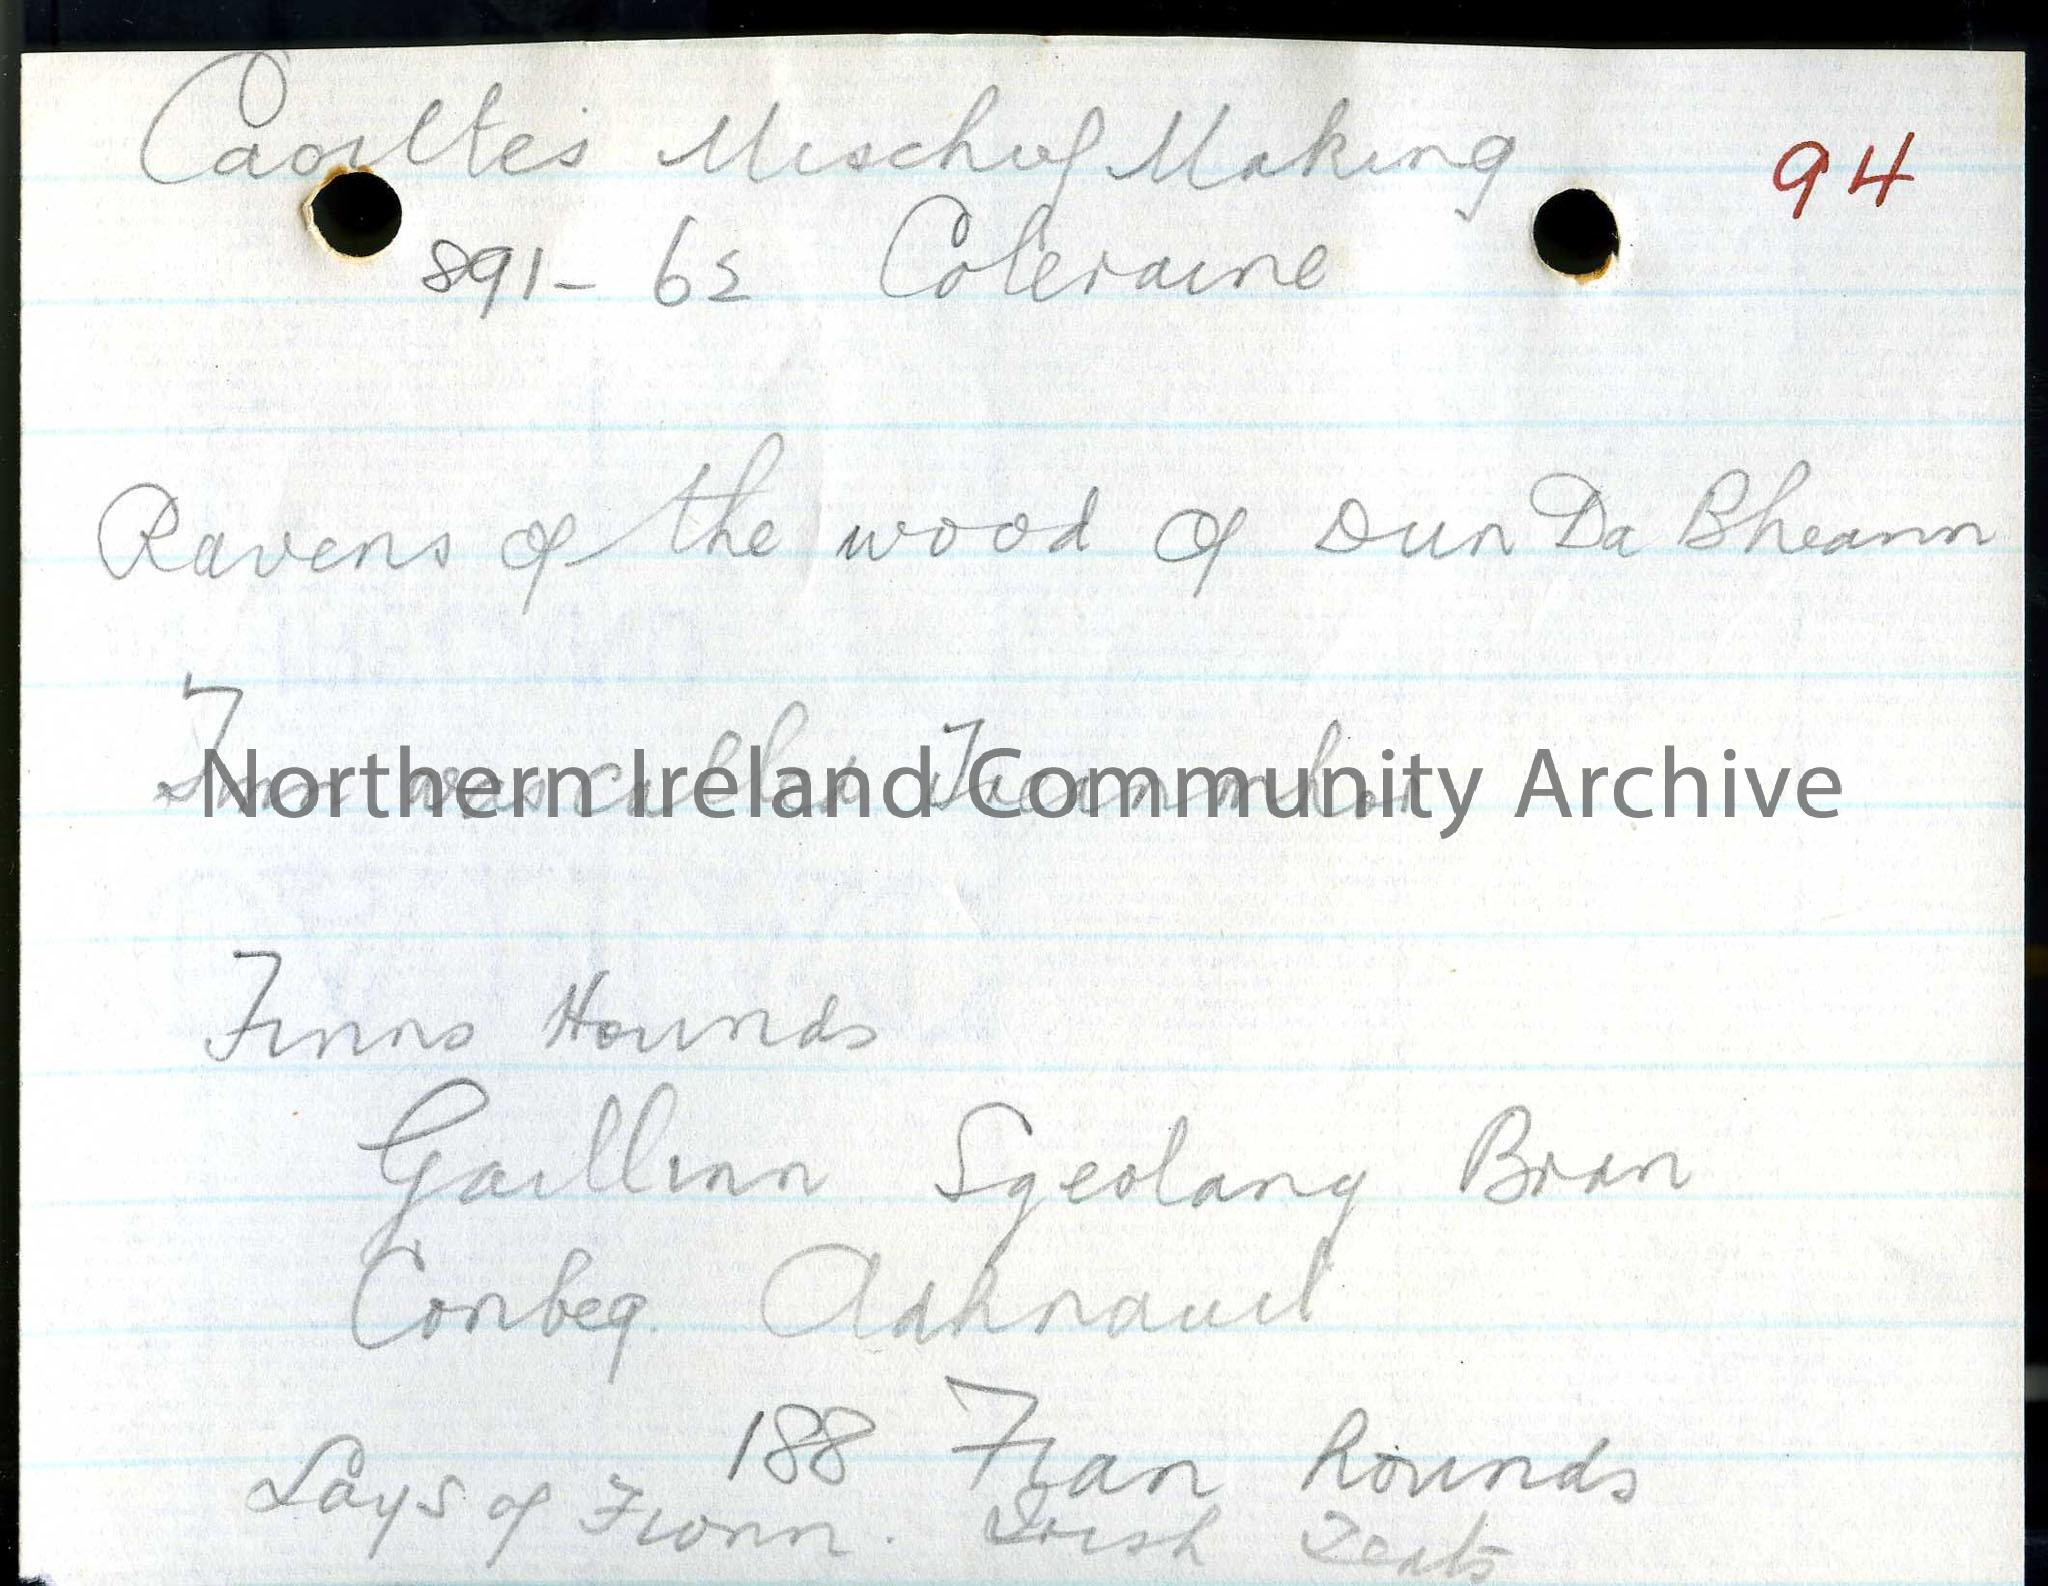 Caoiltes Mischief Making 94
891-62 Coleraine
Ravens of the wood of Dun Da Bheann
was called
Northern Ireland Community Archive
Finns Hounds
Gaillinn Sgeolang Bran
Conbeg. Adhnauil
188 Fian hounds
Lays of Fionn. Irish Texts